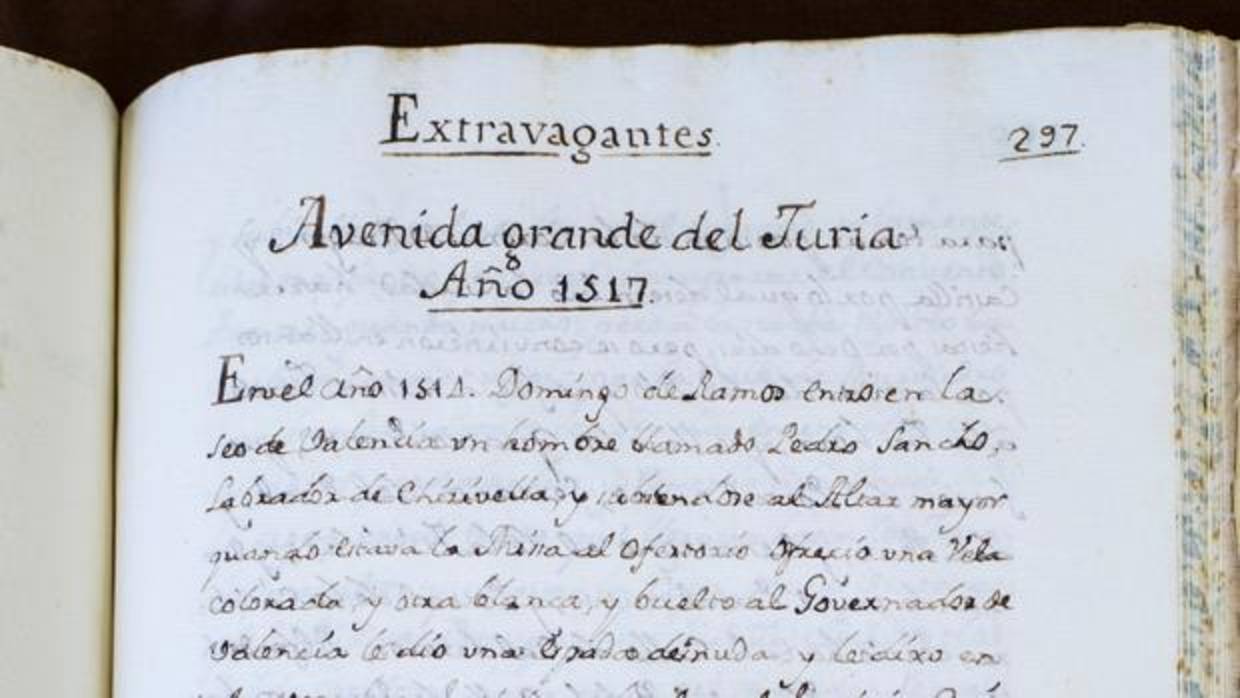 Extravagantes.
297.
Avenida grande del Turia
Año 1517.
En el año 1514. Domingo de Ramos entro en la
seo de Valencia vn hombre llamado Pedro Sancho,
Labrador de Chirivella, y subiendose al Altar mayor
quando estava la Missa al Ofertorio ofrecio vna Vela
colorada, y otra blanca, y buelto al Governador de
Valencia le dio vna Espada desnuda y le dixo en